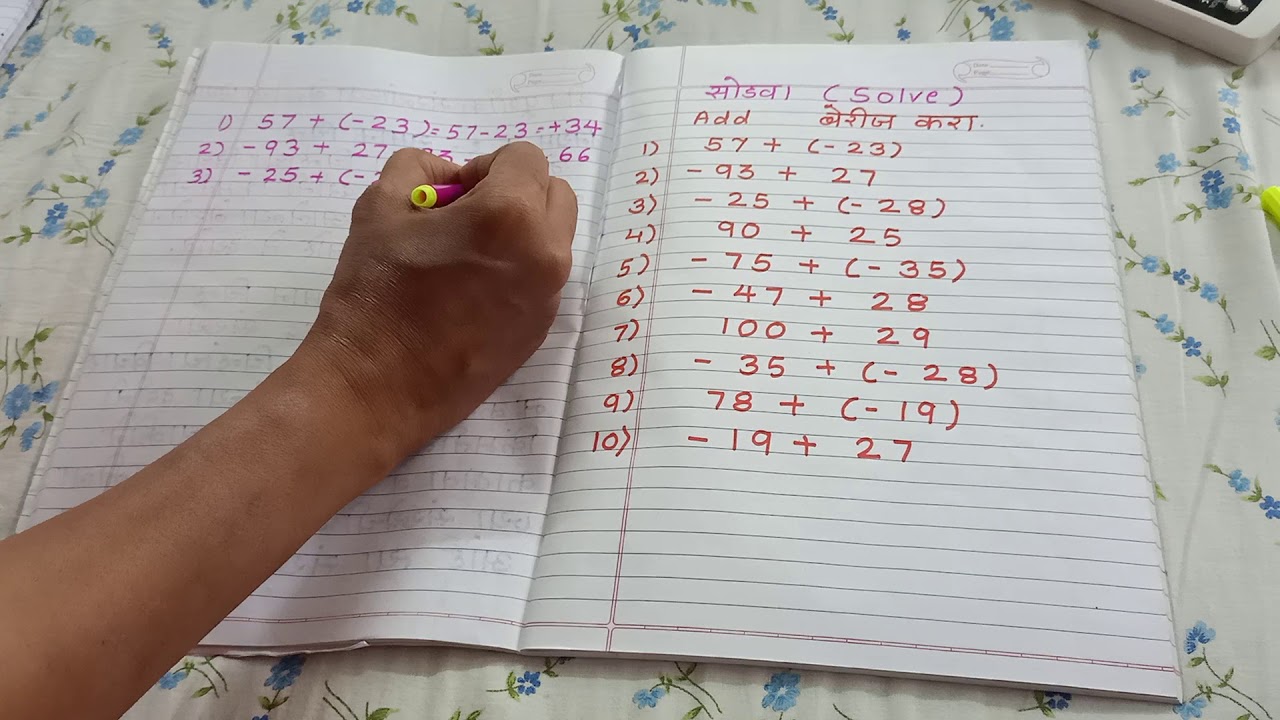 1) 57 + (-23) = 57-23 = +34
2) -93 + 27 66
3) -25 + (-2
सोडवा (Solve)
Add बेरीज करा.
1) 57 + (-23)
2) -93 + 27
3) -25 + (-28)
4) 90 + 25
5) -75 + (-35)
6) -47 + 28
7) 100 + 29
8) -35 + (-28)
9) 78 + (-19)
10) -19 + 27